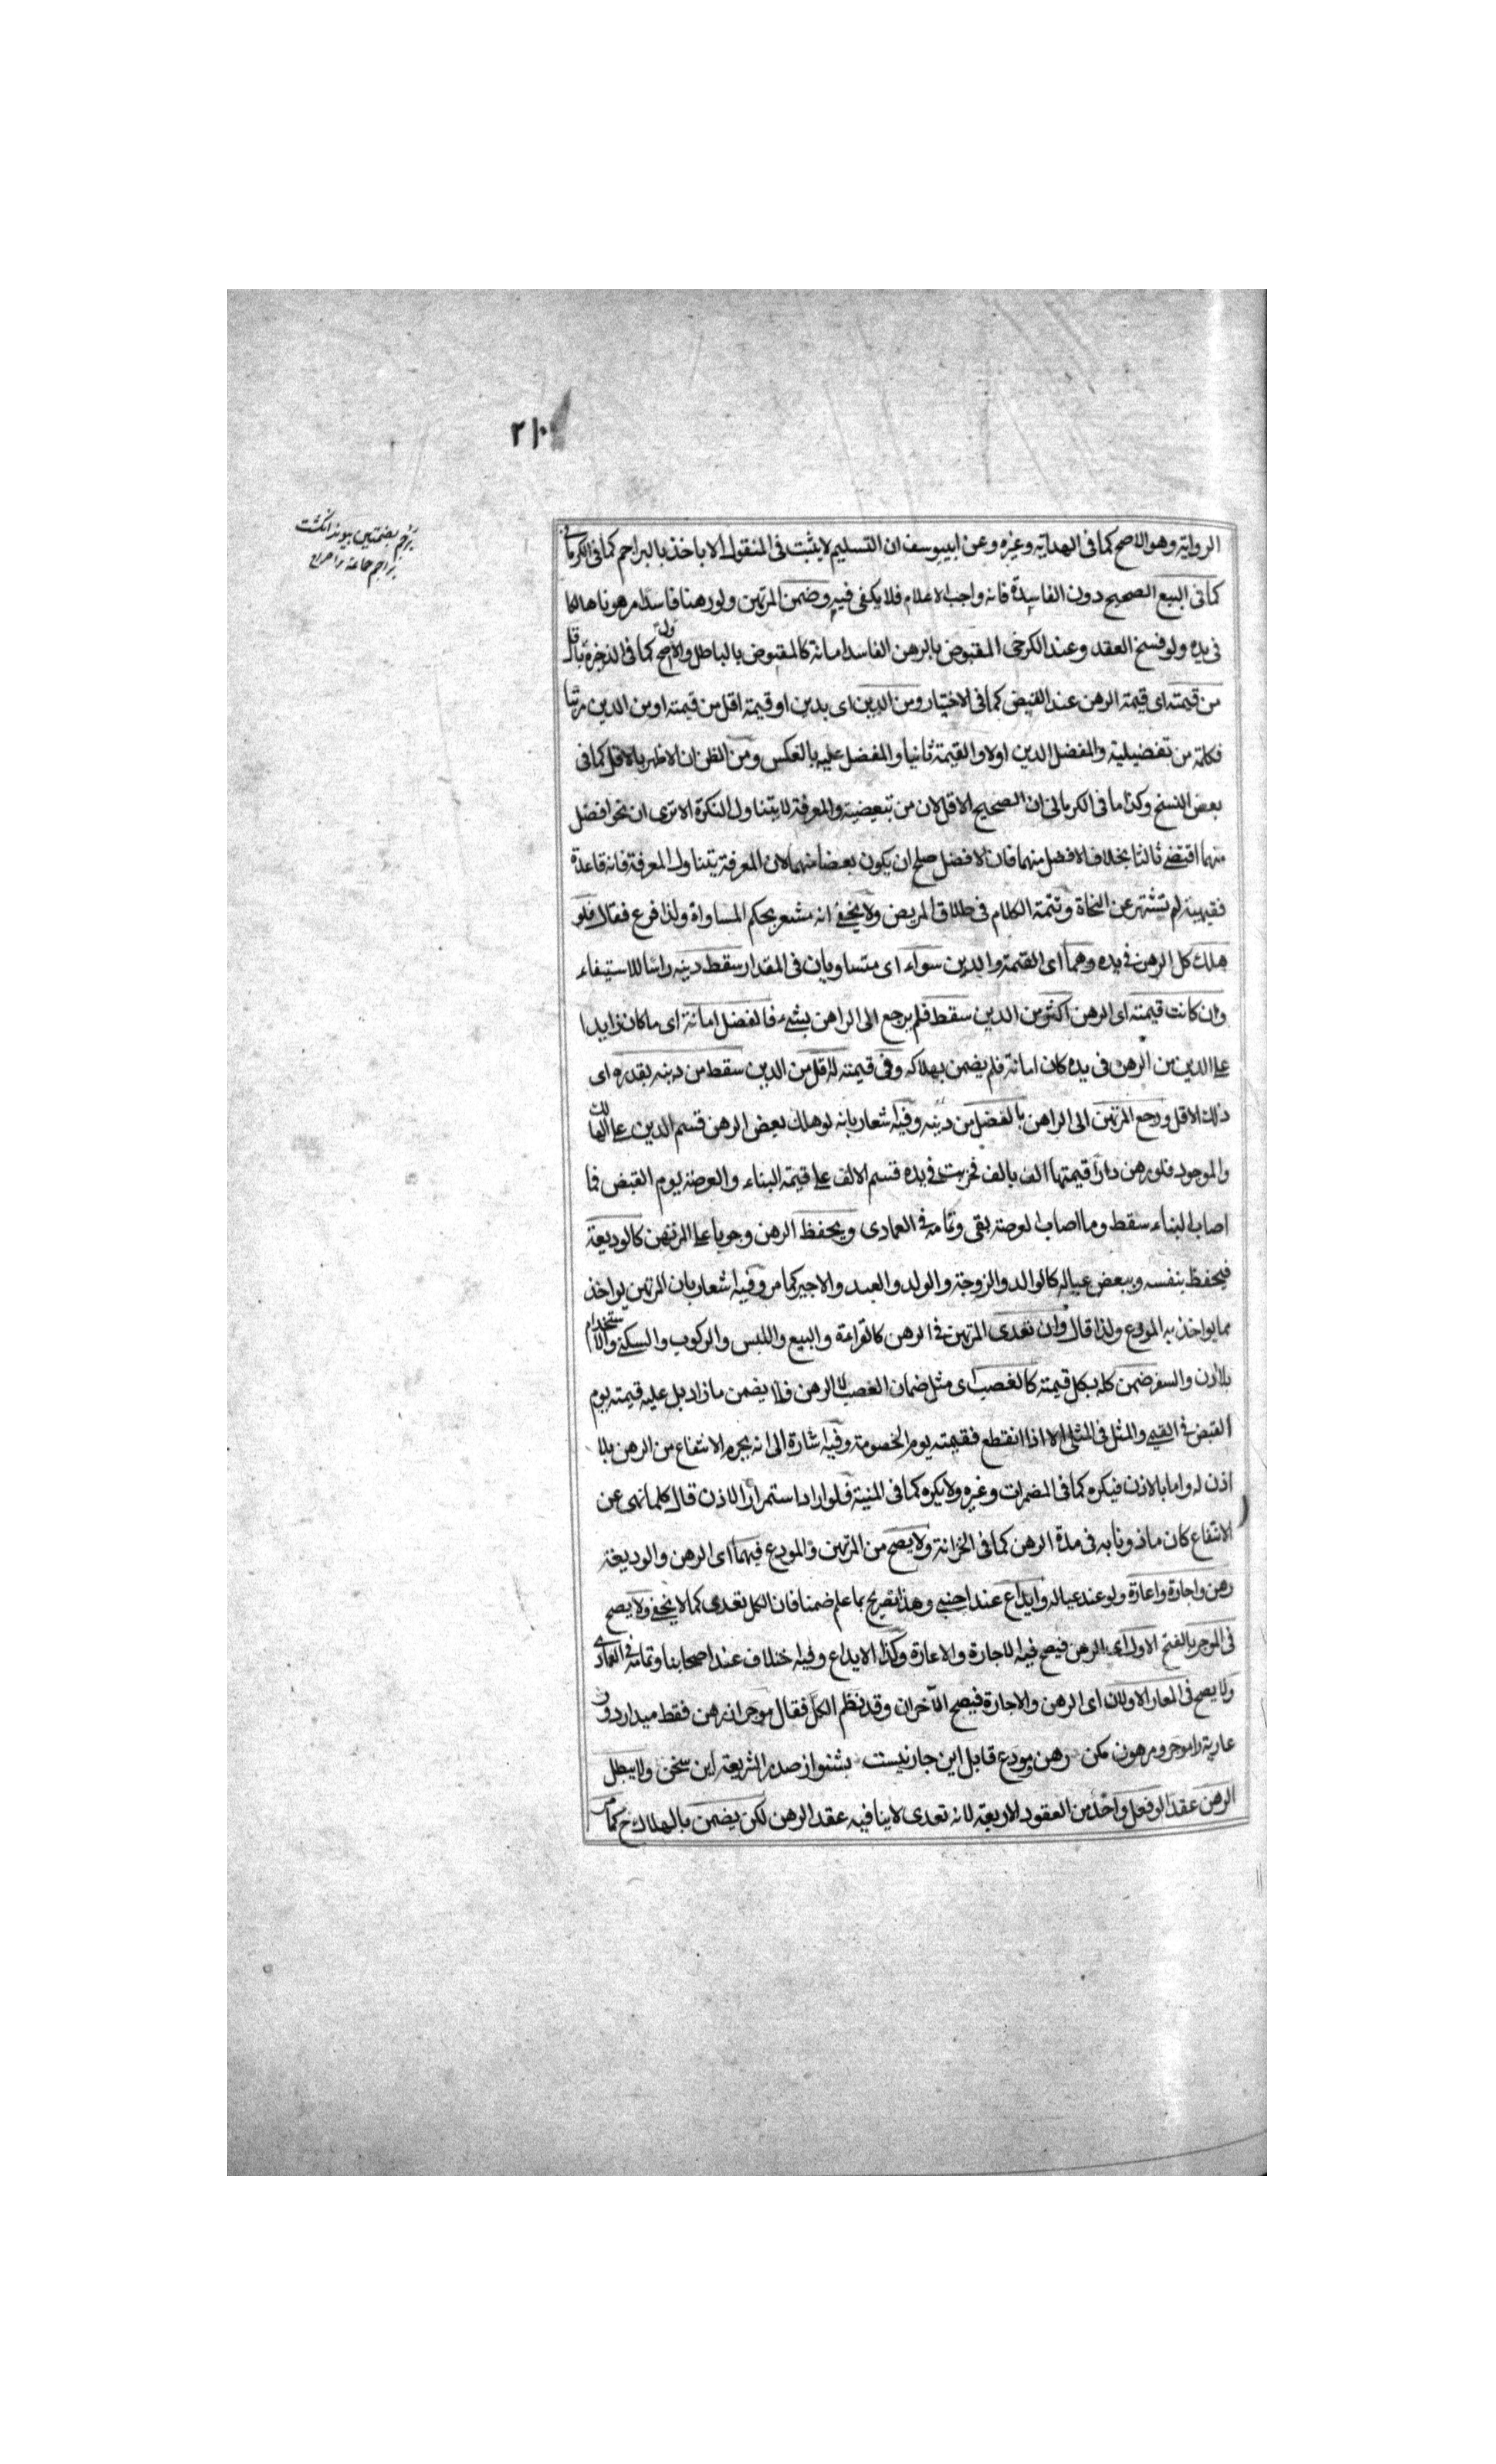 ٢١٠
برجم بضمتين پيوند انگشت
براجم جماعة
الرواية وهو الاصح كما فى الهداية وغيره وعن ابييوسف ان التسليم لا يثبت فى المنقول الا باخذ بالبراجم كما فى الكرمانى
كما فى البيع الصحيح دون الفاسدة فانه واجب الاعلام فلا يكفى فيه وضمن المرتهن ولو رهنا فاسدا مرهونا هالكا
فى يده ولو فسخ العقد وعند الكرخى المقبوض بالرهن الفاسد امانة كالمقبوض بالباطل والاول اصح كما فى الذخيرة باقل
من قيمته اى قيمة الرهن عند القبض كما فى الاختيار ومن الدين اى بدين او قيمة اقل من قيمته او من الدين مرتبا
فكلمة من تفضيلية والمفضل الدين اولا والقيمة ثانيا والمفضل عليه بالعكس ومن الظن ان الاظهر بالاقل كما فى
بعض النسخ وكذا ما فى الكرمانى ان الصحيح الاقل لان من تبعيضية والمعرفة لا يتناول النكرة الا ترى ان نحو افضل
منهما اقتضى ثالثا بخلاف الافضل منهما فان الافضل صلح ان يكون بعضا منهما لان المعرفة يتناول المعرفة فانه قاعدة
فقيهية لم تشتهر عن النحاة وتتمة الكلام فى طلاق المريض ولا يخفى انه مشعر بحكم المساواة ولذا فرع فقال فلو
هلك كل الرهن فى يده وهما اى القيمة والدين سواء اى متساويان فى المقدار سقط دينه راسا للاستيفاء
وان كانت قيمته اى الرهن اكثر من الدين سقط فلم يرجع الى الراهن بشىء فالفضل امانة اى ما كان زايدا
على الدين من الرهن فى يده كان امانة فلم يضمن بهلاكه وفى قيمته الاقل من الدين سقط من دينه بقدره اى
ذلك الاقل ورجع المرتهن الى الراهن بالفضل من دينه وفيه اشعار بانه لو هلك بعض الرهن قسم الدين على الهالك
والموجود فلو رهن دارا قيمتها الف بالف فخربت فى يده قسم الالف على قيمة البناء والعرصة يوم القبض فما
اصاب البناء سقط وما اصاب العرصة بقى وتمامه فى العمادى ويحفظ الرهن وجوبا على المرتهن كالوديعة
فيحفظ بنفسه وببعض عياله كالوالد والزوجة والولد والعبد والاجير كما مر وفيه اشعار بان المرتهن يواخذ
بما يواخذ به المودع ولذا قال وان تعدى المرتهن فى الرهن كالقراءة والبيع واللبس والركوب والسكنى والاستخدام
بلا اذن والسفر ضمن كله بكل قيمته كالغصب اى مثل ضمان الغصب لا الرهن فلا يضمن ما زاد بل عليه قيمته يوم
القبض فى القيمى والمثل فى المثلى الا اذا انقطع فقيمته يوم الخصومة وفيه اشارة الى انه يحرم الانتفاع من الرهن بلا
اذن له واما بالاذن فيكره كما فى المضمرات وغيره ولا يكره كما فى المنية فلو اراد استمرار الاذن قال كلما نهى عن
الانتفاع كان ماذونا به فى مدة الرهن كما فى الخزانة ولا يصح من المرتهن والمودع فيهما اى الرهن والوديعة
رهن واجارة واعارة ولو عند عياله وايداع عند اجنبى وهذا تصريح بما علم ضمنا فان الكل تعدى كما لا يخفى ولا يصح
فى الموجر بالفتح الاول اى الرهن فيصح فيه الاجارة والاعارة وكذا الايداع وفيه اختلاف عند اصحابنا وتمامه فى العمادى
ولا يصح فى المعار الاولان اى الرهن والاجارة فيصح الآخران وقد نظم الكل فقال موجران رهن فقط ميدار دور
عارية را موجر ومرهون مكن رهن ومودع قابل اين جار نيست بشنو از صدر الشريعة اين سخن ولا يبطل
الرهن عقد الو فعل واحد من العقود الاربعة لانه تعدى لا ينافيه عقد الرهن لكن يضمن بالهلاك ح كما مر